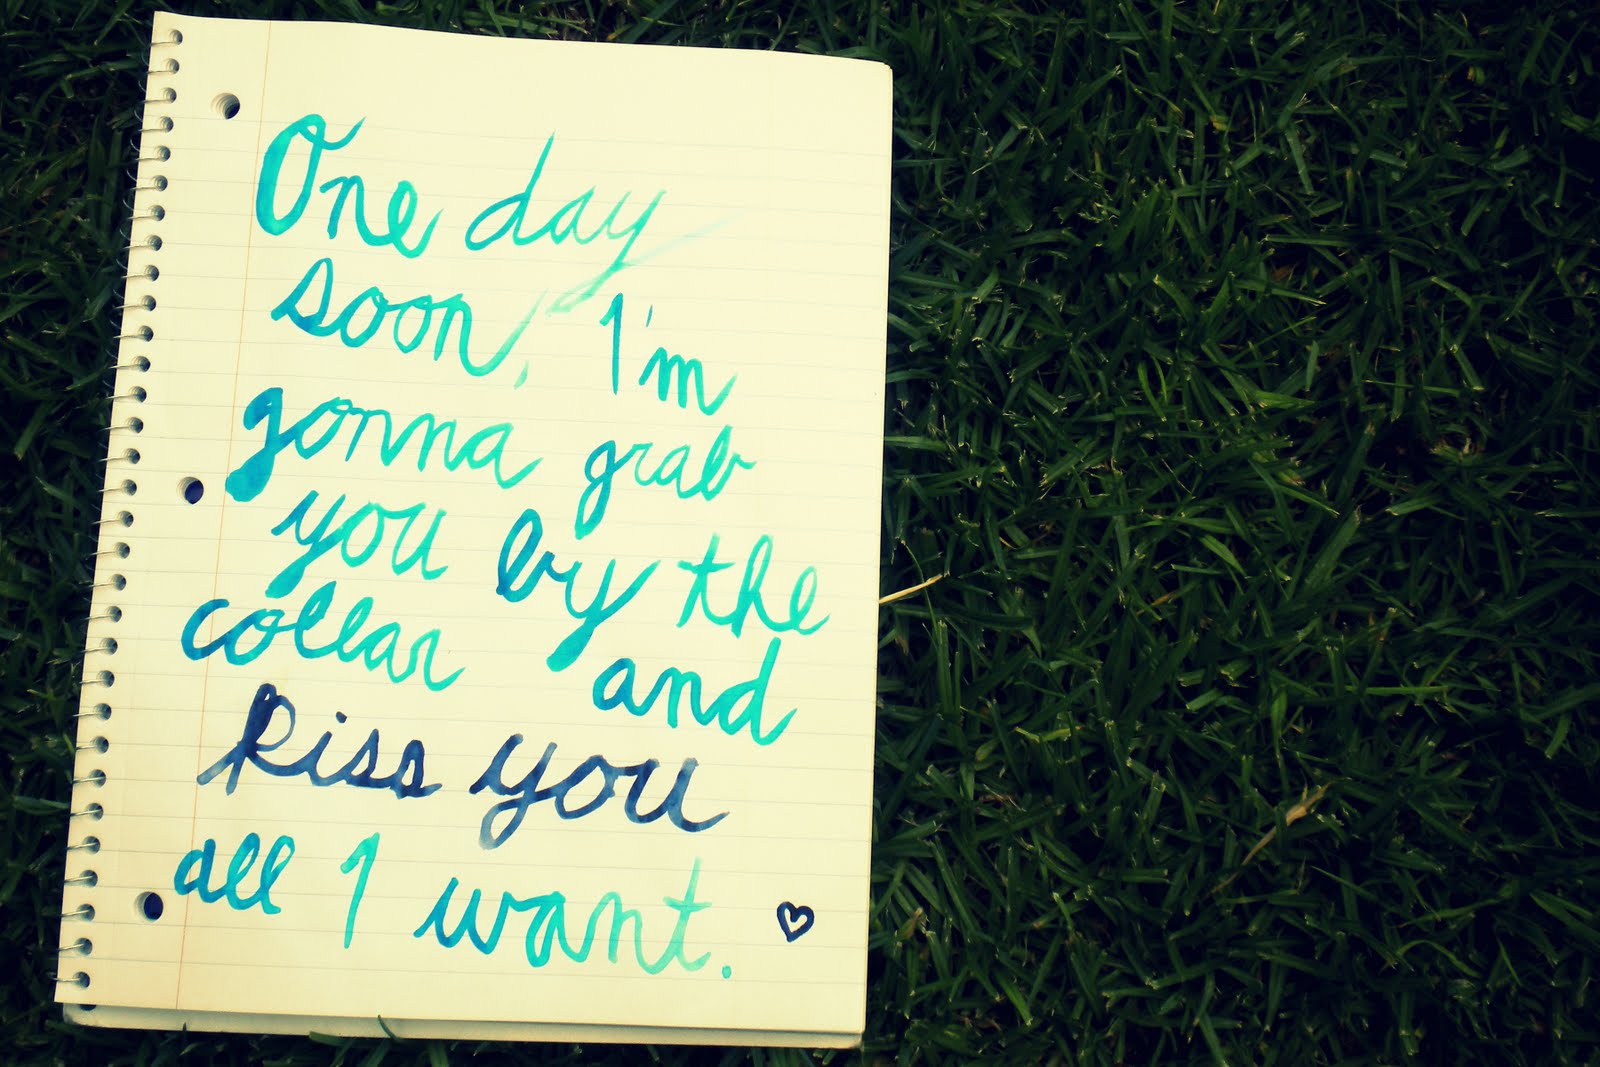 One day
soon, I'm
gonna grab
you by the
collar and
kiss you
all I want.